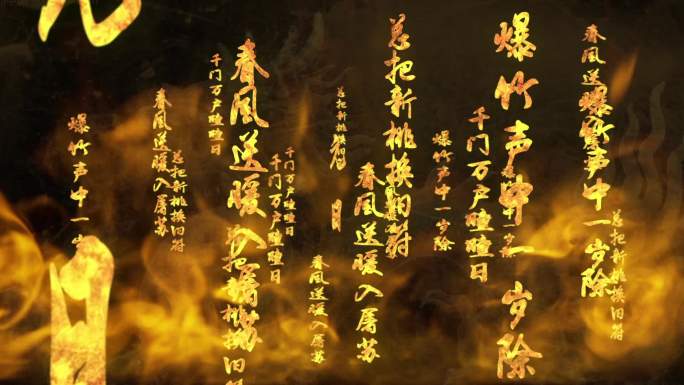 总把新桃换旧符
爆竹声中一岁除
春風送
爆竹声中一岁除
千门万户曈曈日
爆竹声中一岁除
总把新桃换旧符
春風送暖入屠苏
总把新桃换
日
春風送暖入屠苏
千门万户曈曈日
千门万户曈曈日
春風送暖入屠苏
总把新桃换旧符
千门万户曈曈日
总把新桃换旧符
春風送暖入屠苏
爆竹声中一岁